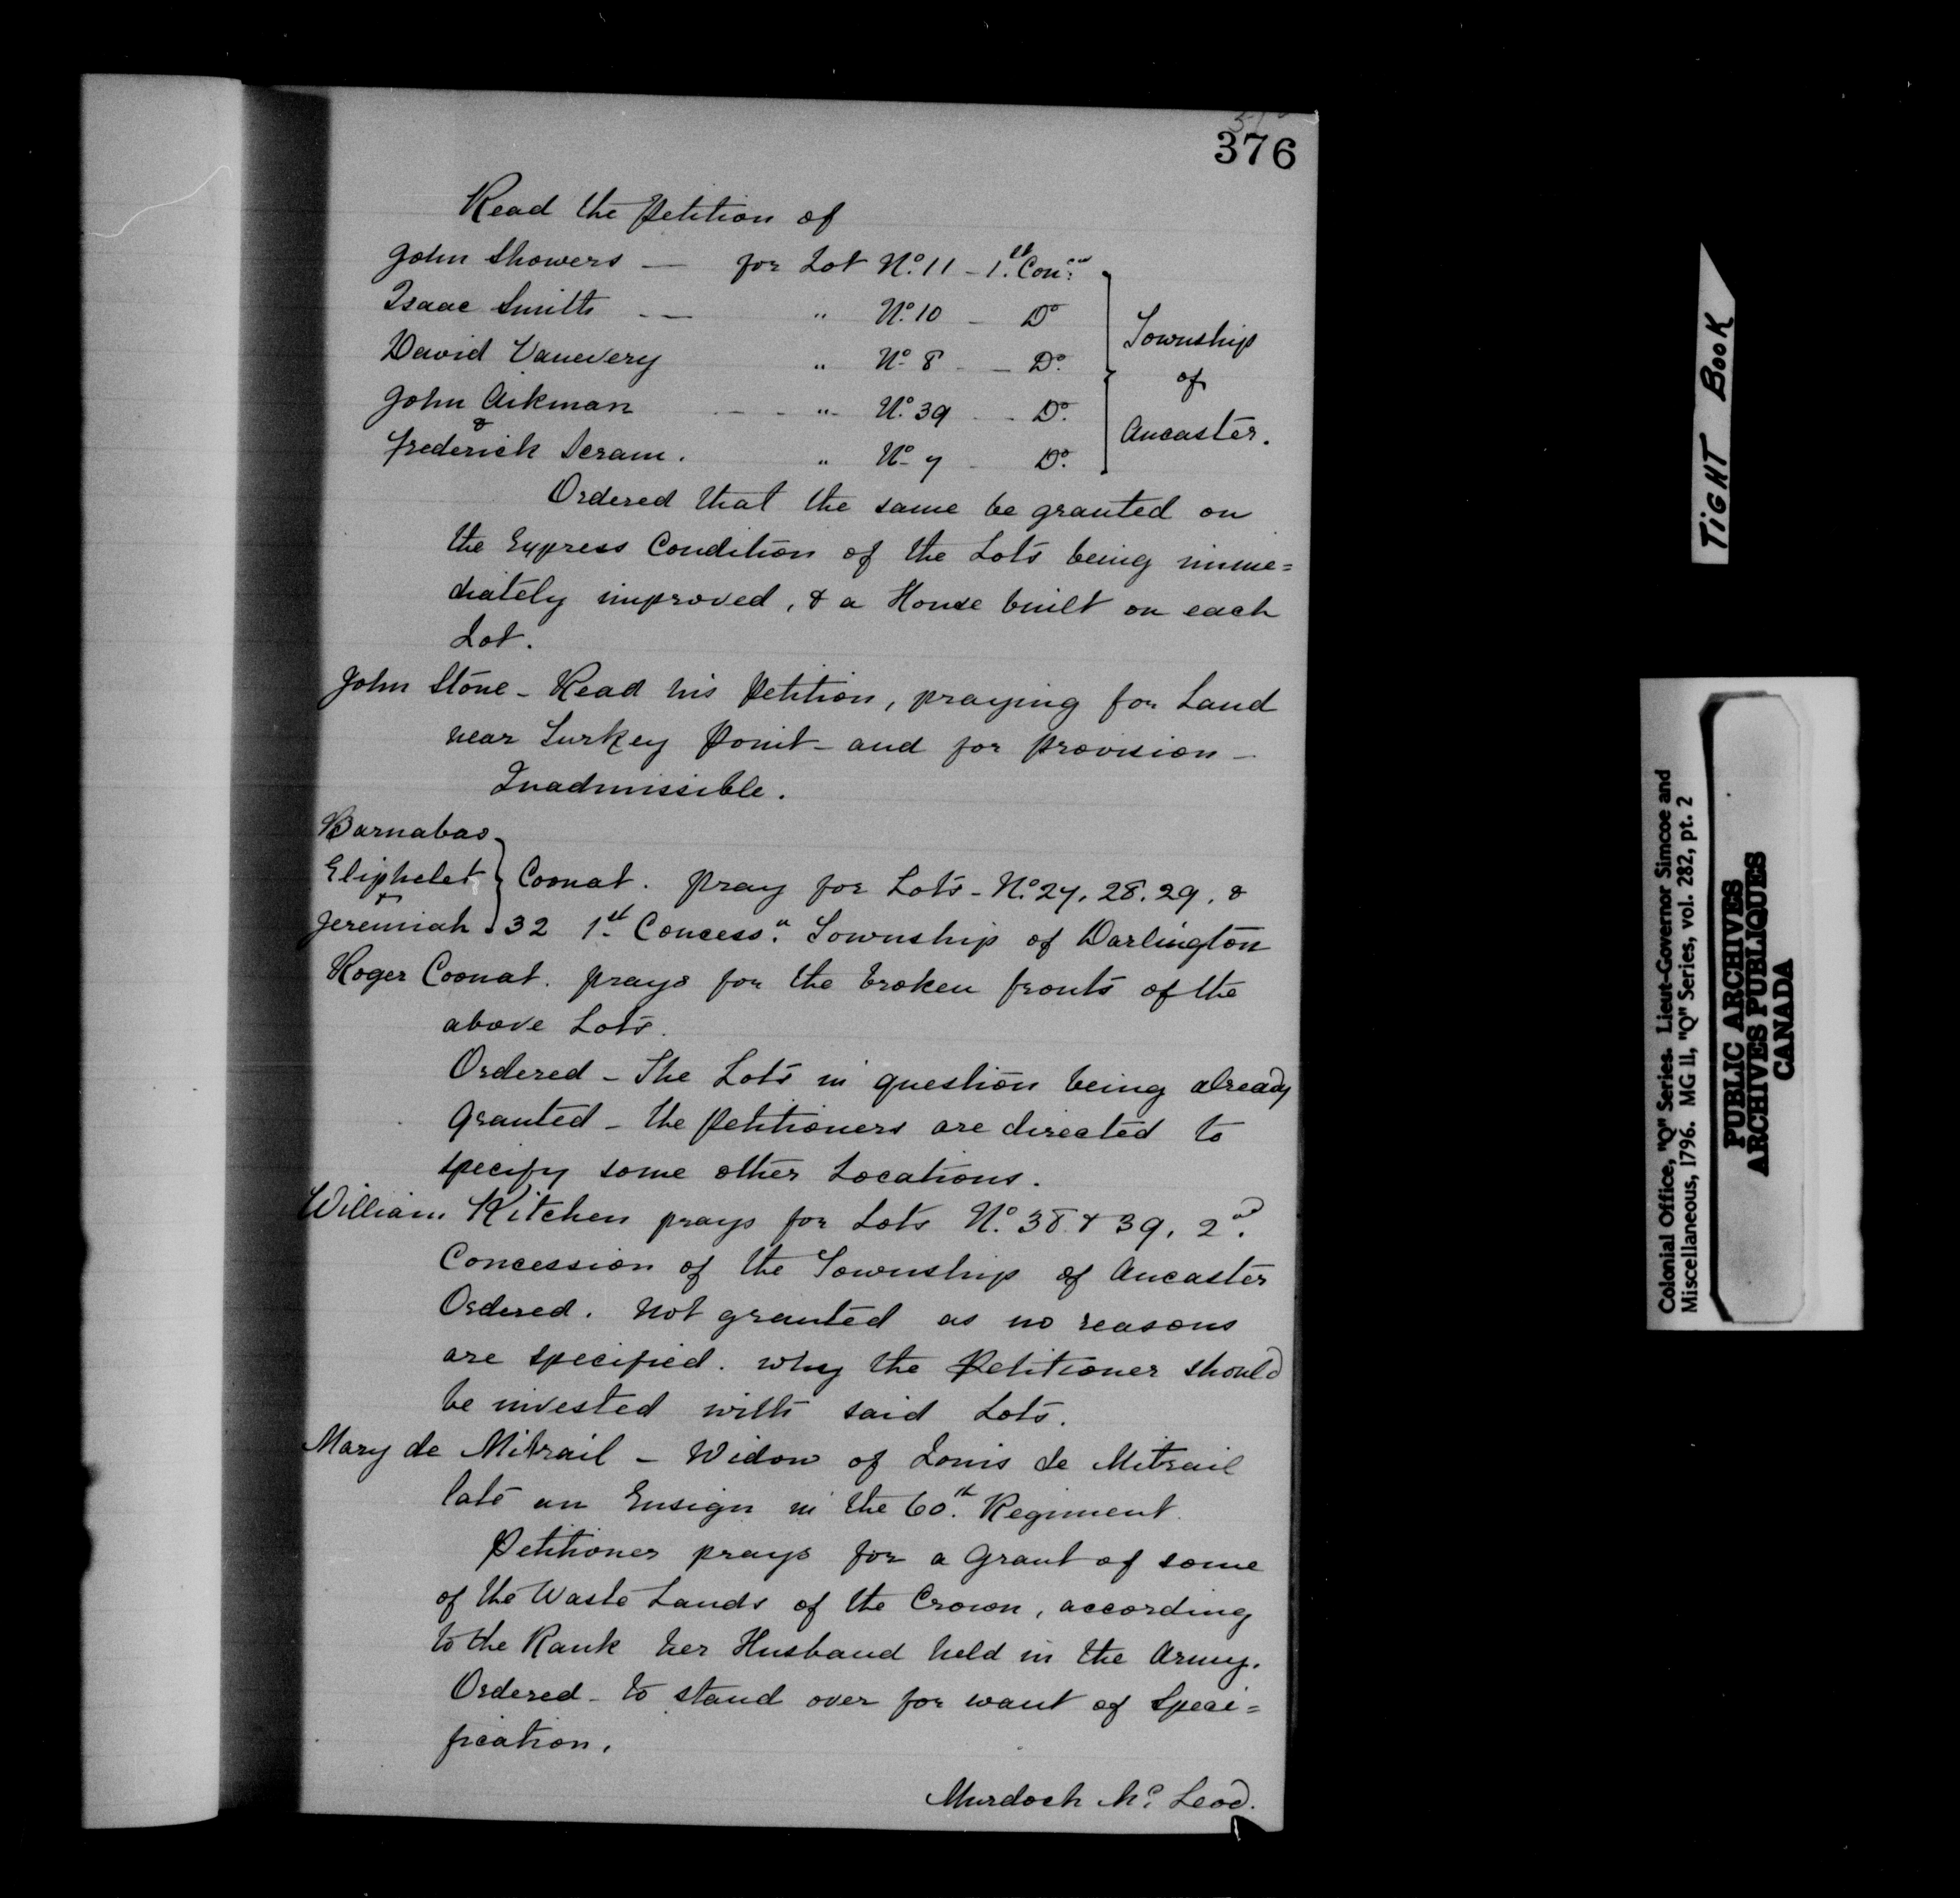 376
Read the Petition of
John Showers — for Lot No. 11 – 1st Con:n
Isaac Smith — " No. 10 – Do
David Vanevery " No. 8 – Do.
John Aikman " No. 39 – Do.
&
Frederick Scram. " No. 7 – Do.
Township
of
Ancaster.
Ordered that the same be granted on
the Express Condition of the Lots being imme=
diately improved, & a House built on each
Lot.
John Stone – Read his Petition, praying for Land
near Turkey Point – and for Provision –
Inadmissible.
Barnabas
Eliphelet } Coonat. pray for Lots – No. 27, 28, 29, &
&
Jeremiah 32 1st Concess:n Township of Darlington
Roger Coonat. prays for the broken fronts of the
above Lots.
Ordered – The Lots in question being already
Granted – the Petitioners are directed to
specify some other Locations.
William Kitchen prays for Lots No. 38 & 39, 2nd
Concession of the Township of Ancaster
Ordered. Not granted as no reasons
are specified. why the Petitioner should
be invested with said Lots.
Mary de Mitrail – Widow of Louis de Mitrail
late an Ensign in the 60th Regiment.
Petitioner prays for a Grant of some
of the Waste Lands of the Crown, according
to the Rank her Husband held in the Army.
Ordered – to stand over for want of Speci=
fication.
Murdoch Mc. Leod.
TIGHT BOOK
Colonial Office, "Q" Series. Lieut-Governor Simcoe and
Miscellaneous, 1796. MG 11, "Q" Series, vol. 282, pt. 2
PUBLIC ARCHIVES
ARCHIVES PUBLIQUES
CANADA